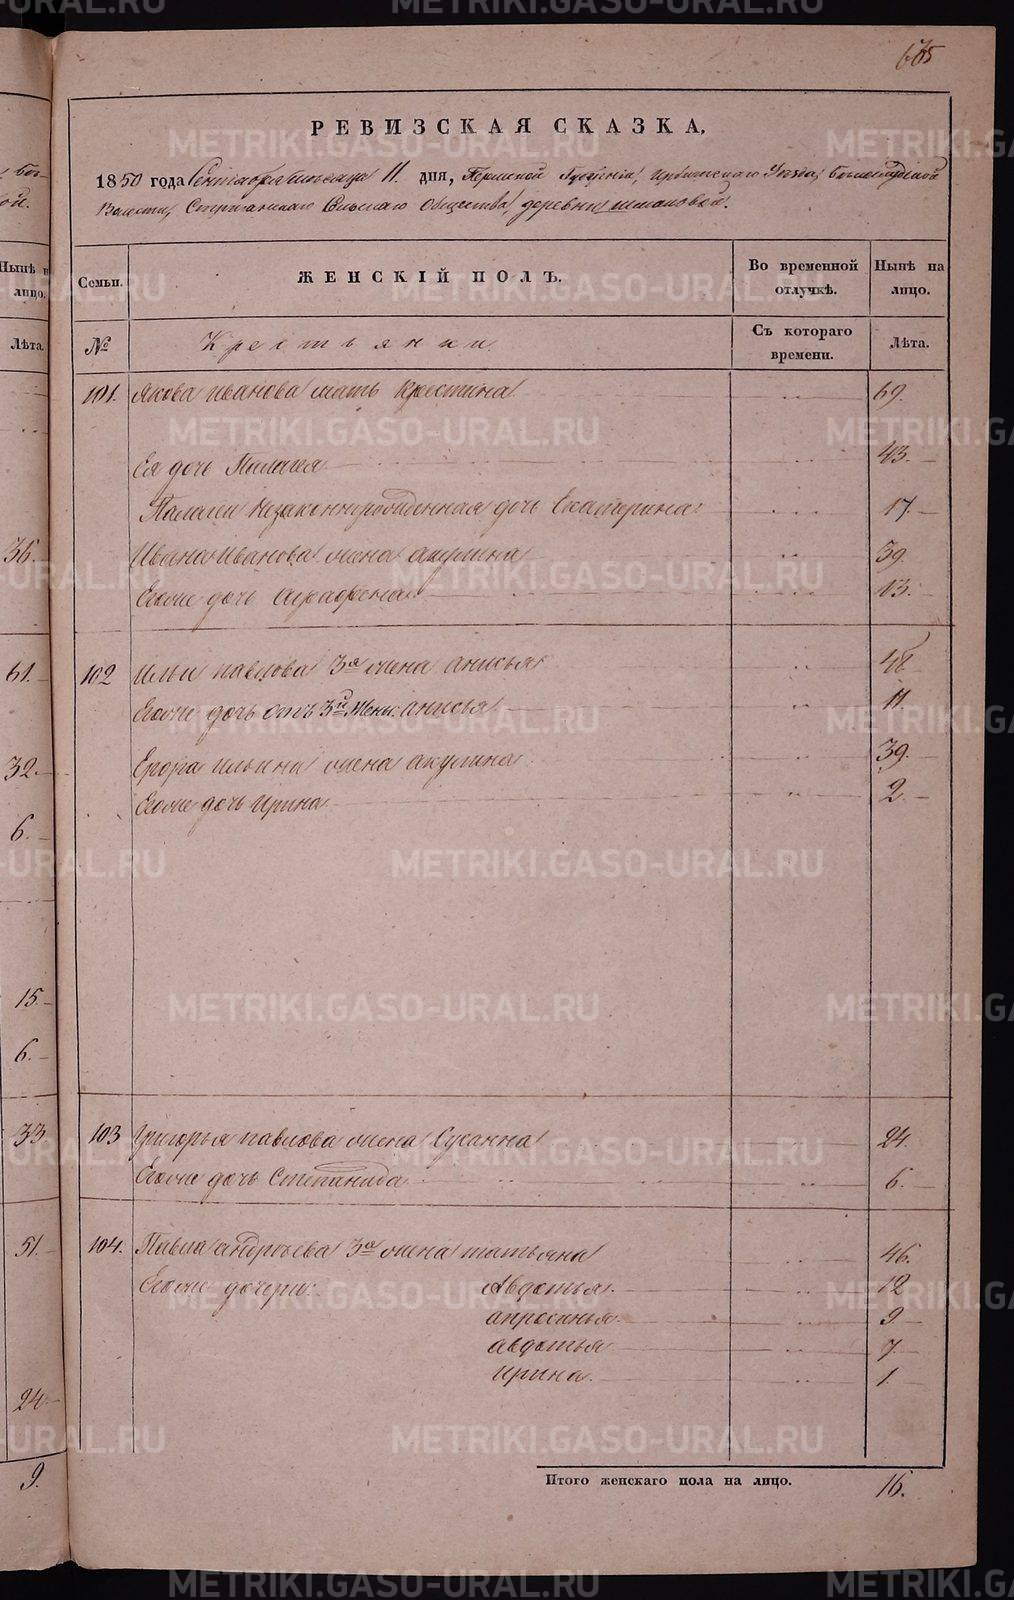 675
РЕВИЗСКАЯ СКАЗКА.
1850 года Сентября месяца 11. дня, Пермской Губернiи, Ирбитскаго Уезда,
Волости, Сельскаго Общества, деревни Шмаковой.
Семьи. ЖЕНСКIЙ ПОЛЪ. Во временной отлучкѣ. Нынѣ на лицо.
№ Крестьянки Съ котораго времени. Лѣта.
101. Якова Иванова мать Крестина 69.
Ея дочь Палагея 43.
Палагеи незаконнорожденная дочь Екатерина 17.
Ивана Иванова жена Акулина 39.
Егоже дочь Аграфена 13.
102 Ильи Павлова 3я жена Анисья 48
Егоже дочь отъ 3й жены: Анисья 11.
Ерофа Ильина жена Акулина 39.
Егоже дочь Ирина 2.
103 Григорья Павлова жена Сусанна 24.
Егоже дочь Степанида 6.
104. Павла Андреева 3я жена Татьяна 46.
Егоже дочери: Авдотья 12
Апросинья 9
Авдотья 7.
Ирина. 1.
Итого женскаго пола на лицо. 16.
Нынѣ на лицо.
Лѣта.
36.
61.
32.
6.
15
6.
33
51.
24
9.
METRIKI.GASO-URAL.RU